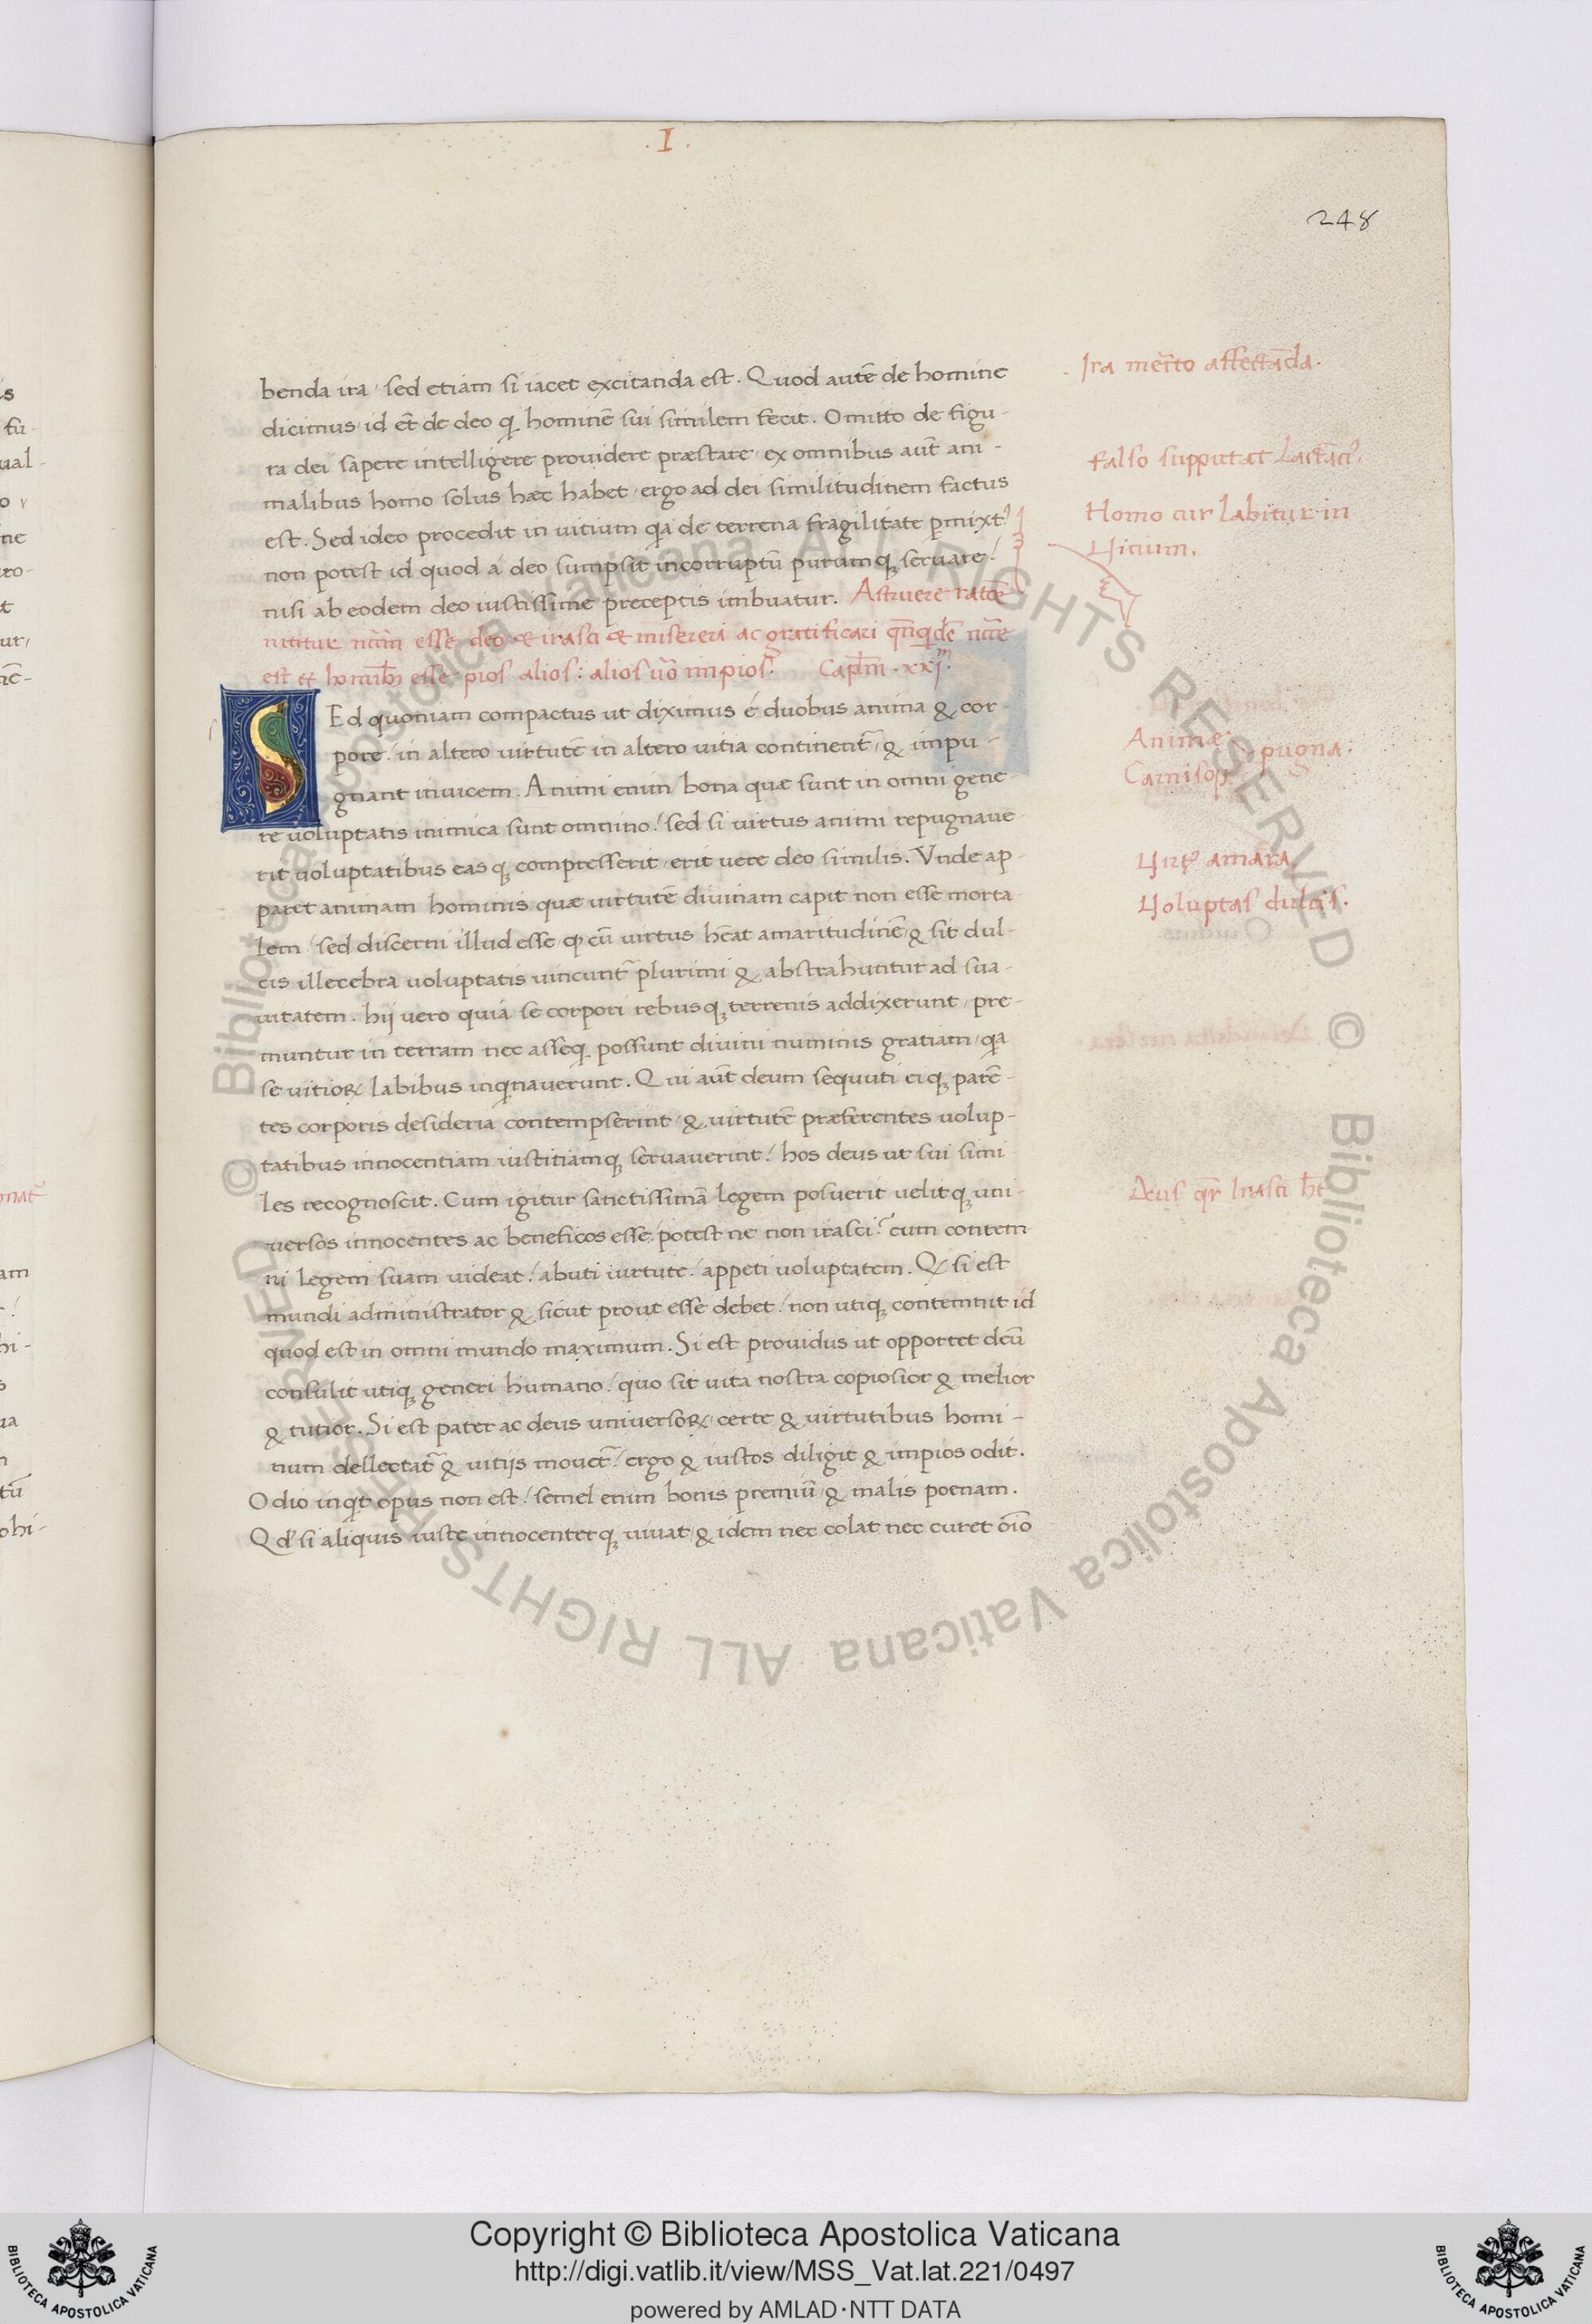 .I.
248
benda ira / sed etiam si iacet excitanda est. Quod autē de homine
dicimus / id ēt de deo q hominē sui similem fecit. Omitto de figu-
ra dei / sapere intelligere providere præstare / ex omnibus aūt ani-
malibus homo solus hæc habet / ergo ad dei similitudinem factus
est. Sed ideo procedit in vitium qa de terrena fragilitate pmixt⁹
non potest id quod a deo sumpsit incorruptū purumq servare /
nisi ab eodem deo iustissime preceptis imbuatur. Astruere ratōe
nititur esse deo & irasci & misereri ac gratificari
est & hominib esse pios alios: alios v̄o impios. Capl̄m .xxj.
SEd quoniam compactus ut diximus é duobus anima & cor-
pore / in altero virtutē in altero vitia continent̄ / & impu-
gnant invicem. Animi enim bona quæ sunt in omni gene-
re voluptatis inimica sunt omnino / sed si virtus animi repugnave-
rit voluptatibus eas q compresserit / erit vere deo similis. Vnde ap-
paret animam hominis quæ virtutē divinam capit non esse morta
lem / sed discerni illud esse q cū virtus hēat amaritudinē & sit dul-
cis illecebra voluptatis vincunt̄ plurimi & abstrahuntur ad sua-
vitatem. hij vero quia se corpori rebusq terrenis addixerunt / pre-
muntur in terram nec asseq possunt divini numinis gratiam / qa
se vitioꝝ labibus inqnaverunt. Qui aūt deum sequuti ei q parē-
tes corporis desideria contempserint / & virtutē præferentes volup-
tatibus innocentiam iustitiamq servaverint / hos deus ut sui simi
les recognoscit. Cum igitur sanctissimā legem posuerit velitq uni-
versos innocentes ac beneficos esse / potest ne non irasci? cum contem
ni legem suam videat / abuti virtute / appeti voluptatem. Q si est
mundi administrator & sicut prout esse debet / non utiq contemnit id
quod est in omni mundo maximum. Si est providus ut opportet deū
consulit utiq generi humano / quo sit vita nostra copiosior & melior
& tutior. Si est pater ac deus universoꝝ / certe & virtutibus homi-
num dellectat̄ & vitijs movet̄ / ergo & iustos diligit & impios odit.
Odio inqt opus non est / semel enim bonis premiū & malis poenam.
Qd si aliquis iuste innocenterq vivat / & idem nec colat nec curet oīo
Ira mēr̄to affectāda.
Falso supputat Lactāci⁹.
Homo cur labitur in
Vitium.
Animæ
Carnisq
pugna.
Virt⁹ amara.
Voluptas dulcis.
Deus qr̄ Irasci h̄t
Copyright © Biblioteca Apostolica Vaticana
http://digi.vatlib.it/view/MSS_Vat.lat.221/0497
powered by AMLAD·NTT DATA
BIBLIOTECA APOSTOLICA VATICANA
BIBLIOTECA APOSTOLICA VATICANA
© Biblioteca Apostolica Vaticana ALL RIGHTS RESERVED
© Biblioteca Apostolica Vaticana ALL RIGHTS RESERVED